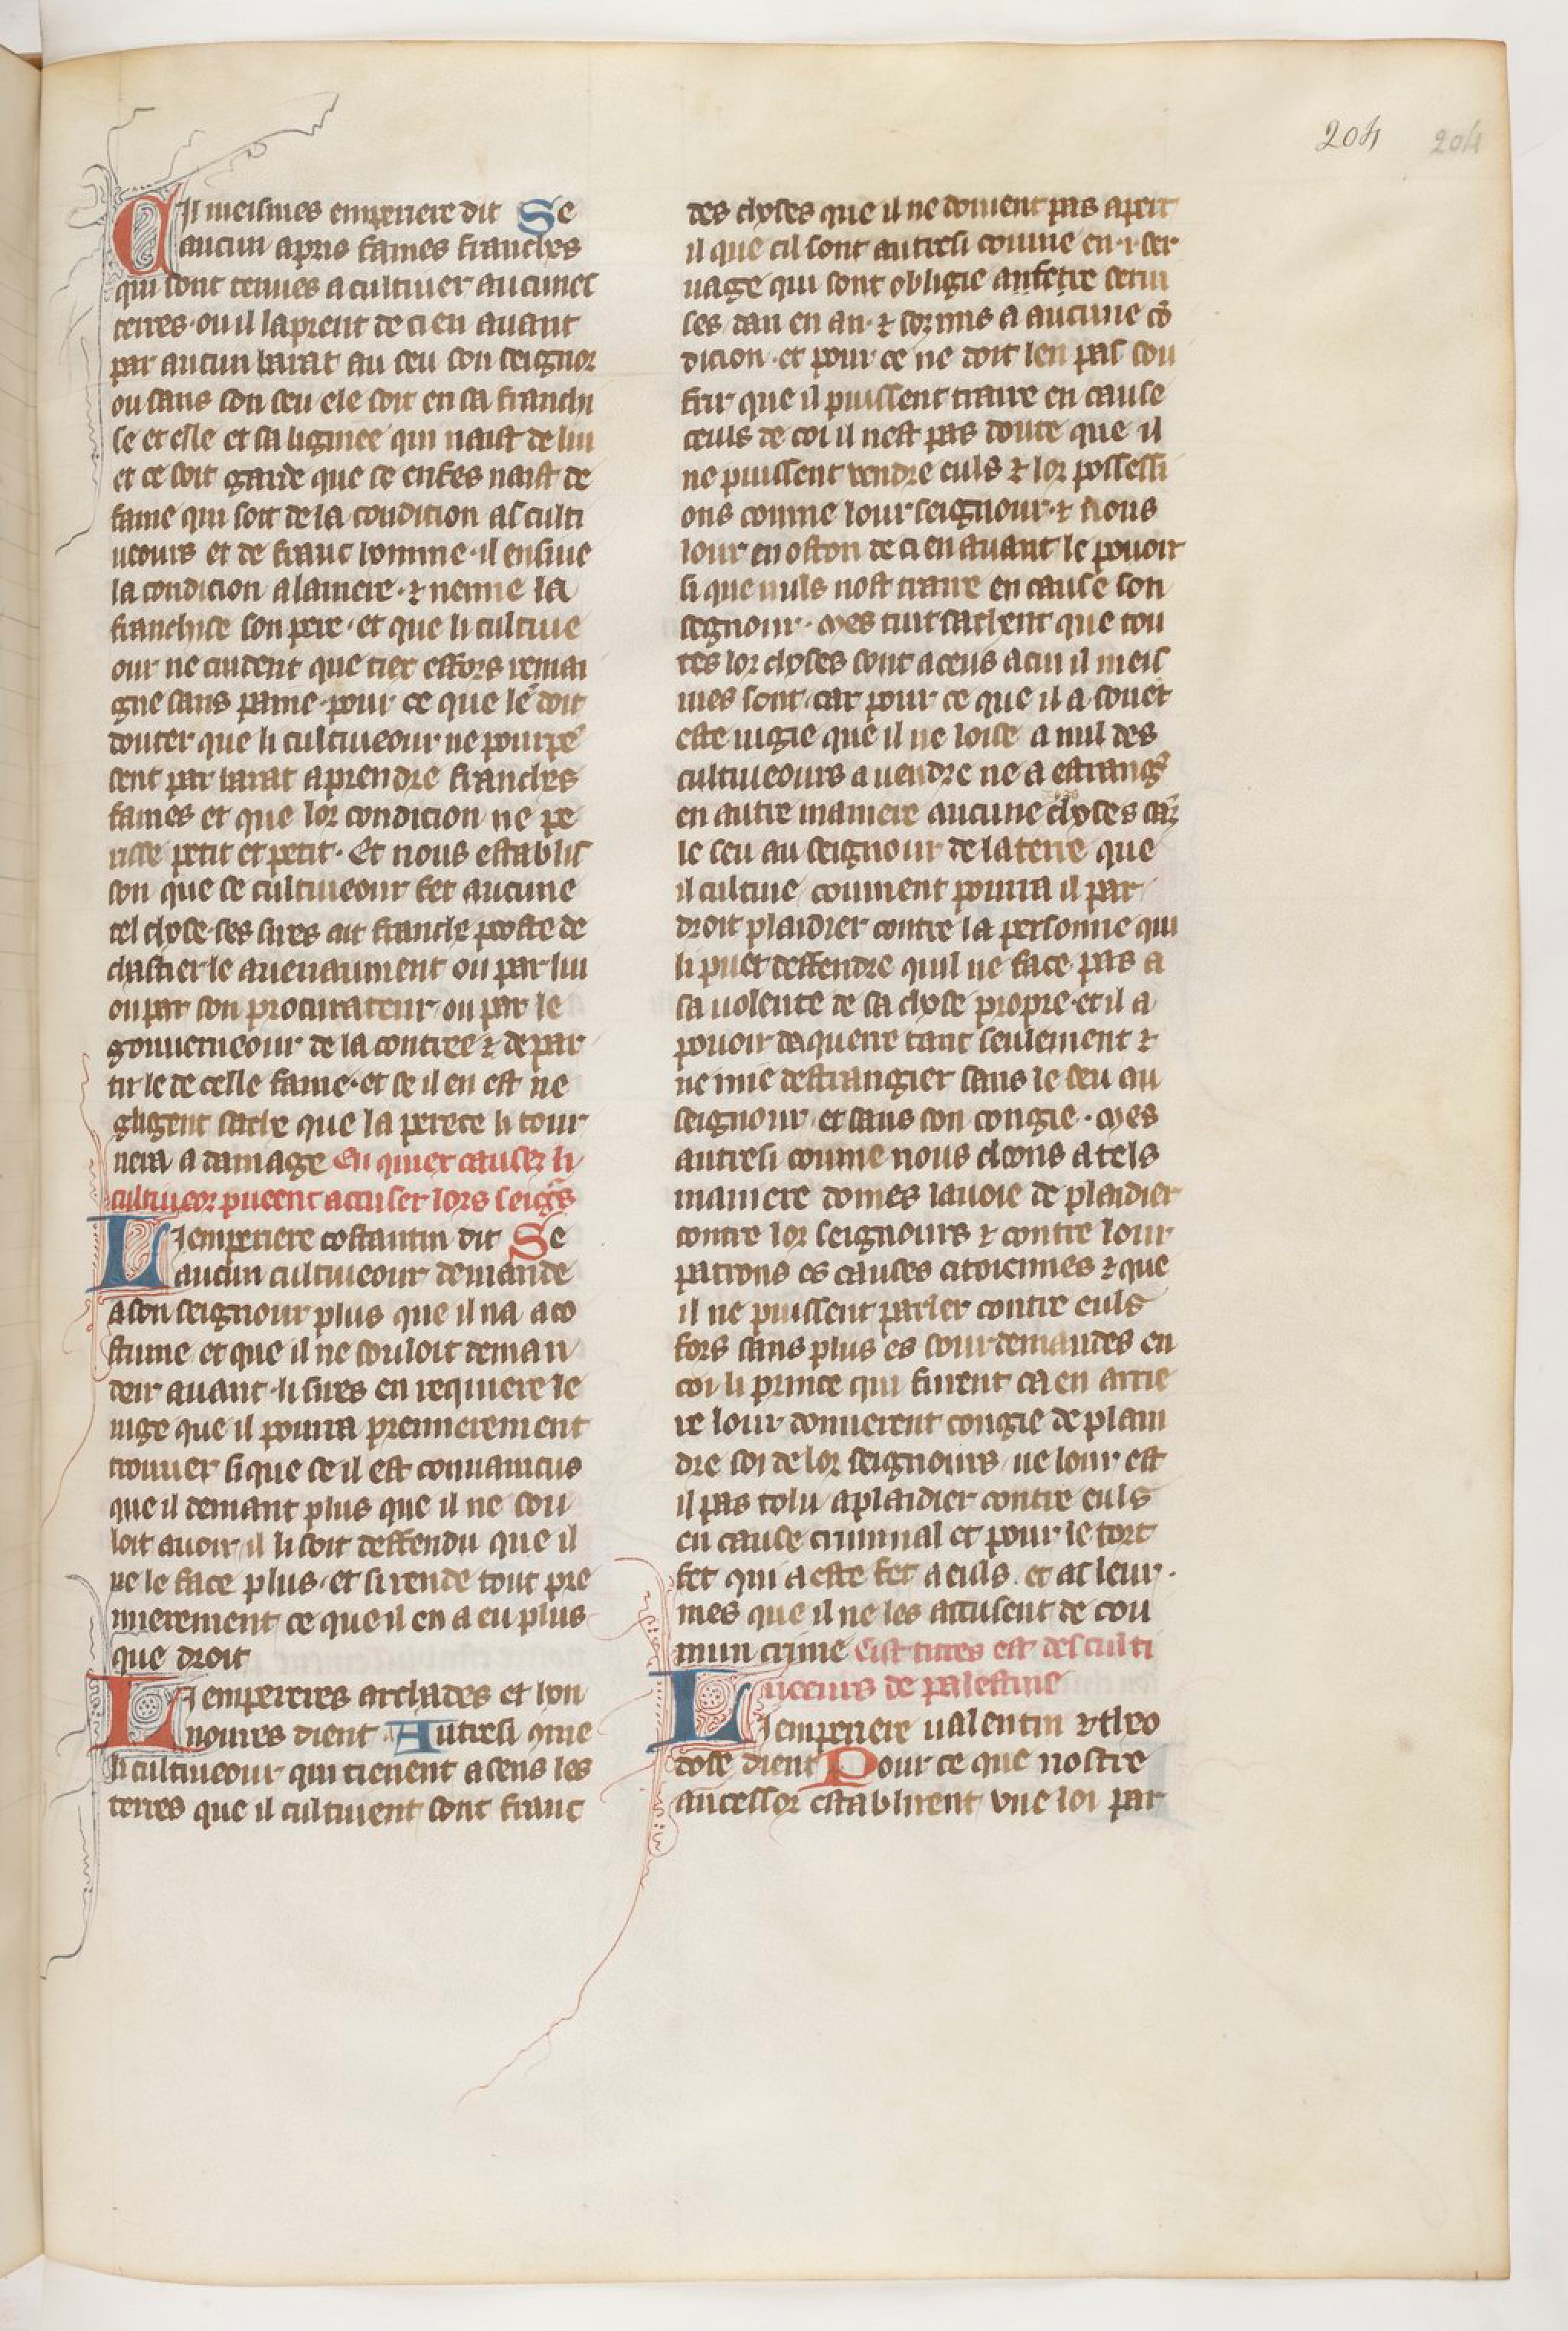 204 204
Cil meismes emperiere dit Se
aucun a pris fames franches
qui sont tenues a cultiuer aucunes
terres · ou il la prent de ci en auant
par aucun barat au seu son seignor
ou sans son seu ele soit en sa franchi
se et elle et sa ligniee qui naist de lui
et ce soit garde que se enfes naist de
fame qui soit de la condition as culti
ueours et de franc homme · il ensiue
la condicion a la mere · ⁊ nenne la
franchise son pere · et que li cultiue
our ne cuident que tiex effors remai
gne sans paine · pour ce que lē doit
douter que li cultiueour ne pourpē
sent par barat a prendre franches
fames et que lor condicion ne pe
risse petit et petit · Et nous establis
son que se cultiueour fet aucune
tel chose · ses sires ait franche poste de
chastier le auenaument ou par lui
ou par son procurateur ou par le
gouuerneour de la contree ⁊ de par
tir le de celle fame · et se il en est ne
gligent sache que la perece li tour
nera a damage En quiex causez li
cultiueor pueent accuser lors seigs̄
Li emperiere costantin dit Se
aucun cultiueour demande
a son seignour plus que il na aco
stume et que il ne souloit deman
deir auant · li sires en requiere le
iuge que il pourra premierement
trouuer si que se il est conuaincus
que il demant plus que il ne sou
loit auoir il li soit deffendu que il
ne le face plus · et si rende tout pre
mierement ce que il en a eu plus
que droit
Li empereres archades et hon
noures dient Autresi que
li cultiueour qui tienent a cens les
terres que il cultiuent sont franc
des choses que il ne doiuent pas apert
il que cil sont autresi comme en · i · ser
uage qui sont obligie a n fetre serui
ses dan en an · ⁊ sozmis a aucune cō
dicion · et pour ce ne doit len pas sou
frir que il puissent traire en cause
ceuls de coi il nest pas doute que il
ne puissent vendre euls ⁊ lor possessi
ons comme lour seignour · ⁊ nous
lour en oston de ci en auant le pouoir
si que nuls nost traire en cause son
segnour · Mes tuit sachent que tou
tes lor choses sont a ceus a cui il meis
mes sont car pour ce que il a souēt
este iugie que il ne loise a nul des
cultiueours a uendre ne a estrangr̄
en autre maniere aucune choses sāz
le seu au seignour de la terre que
il cultiue coument pourra il par
droit plaidier contre la personne qui
li puet deffendre quil ne face pas a
sa uolente de sa chose propre · et il a
pouoir daquerre tant seulement ⁊
ne mie destrangier sans le seu au
seignour et sans son congie · Mes
autresi comme nous cloons a tels
maniere domes la uoie de plaidier
contre lor seignours ⁊ contre lour
patrons es causes citoiennes ⁊ que
il ne puissent parler contre euls
fors sans plus es sourdemandes en
coi li prince qui furent ca en arrie
re lour donnerent congie de plain
dre soi de lor seignours ne lour est
il pas tolu a plaidier contre euls
en cause criminal et pour le tort
fet qui a este fet a euls et as leur ·
mes que il ne les accusent de cou
mun crime Cist titres est des culti
ueeurs de palestine
Li emperiere ualentin ⁊ theo
dose dient Pour ce que nostre
ancessor establirent vne loi par